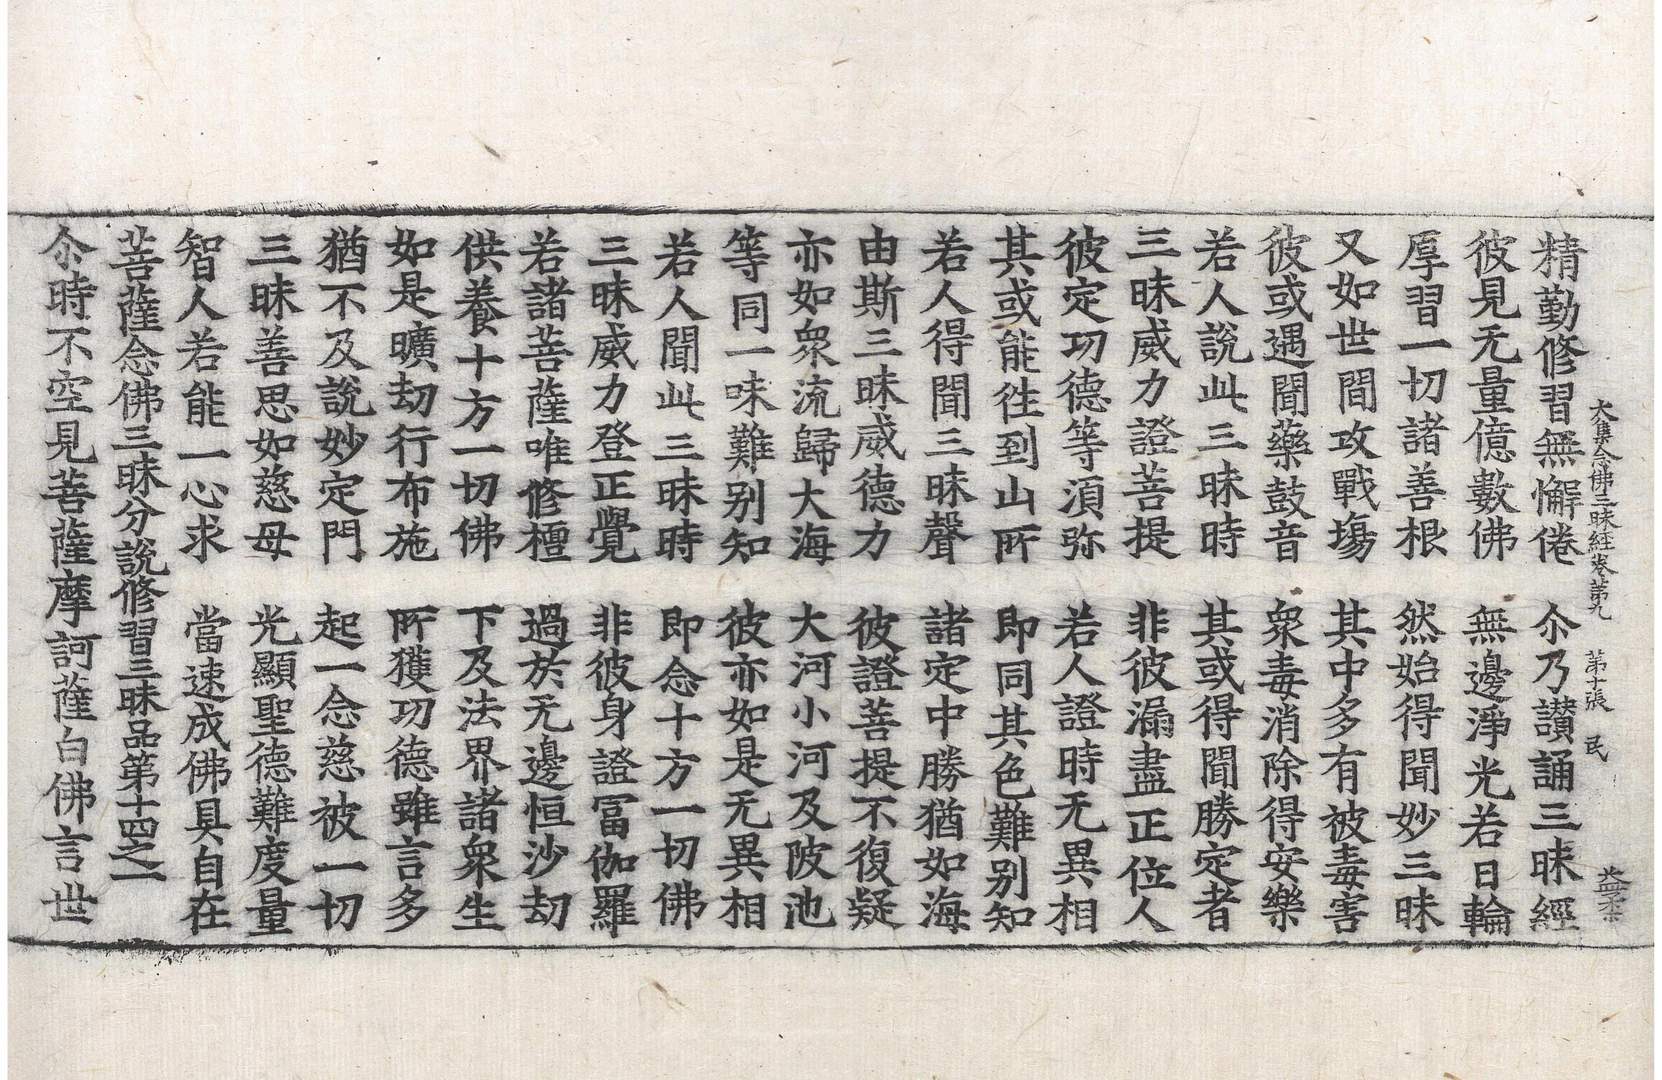 大集念佛三昧經卷第九 第十張 民
精勤修習無懈倦 尒乃讃誦三昧經
彼見无量億數佛 無邊淨光若日輪
厚習一切諸善根 然始得聞妙三昧
又如世間攻戰場 其中多有被毒害
彼或遇聞藥鼓音 衆毒消除得安樂
若人說此三昧時 其或得聞勝定者
三昧威力證菩提 非彼漏盡正位人
彼定功德等湏弥 若人證時无異相
其或能徃到山所 即同其色難别知
若人得聞三昧聲 諸定中勝猶如海
由斯三昧威德力 彼證菩提不復疑
亦如衆流歸大海 大河小河及陂池
等同一味難别知 彼亦如是无異相
若人聞此三昧時 即念十方一切佛
三昧威力登正覺 非彼身證冨伽羅
若諸菩薩唯修檀 過於无邊恒沙劫
供養十方一切佛 下及法界諸衆生
如是曠劫行布施 所獲功德雖言多
猶不及說妙定門 起一念慈被一切
三昧善思如慈母 光顯聖德難度量
智人若能一心求 當速成佛具自在
菩薩念佛三昧分說修習三昧品第十四之一
尒時不空見菩薩摩訶薩白佛言世